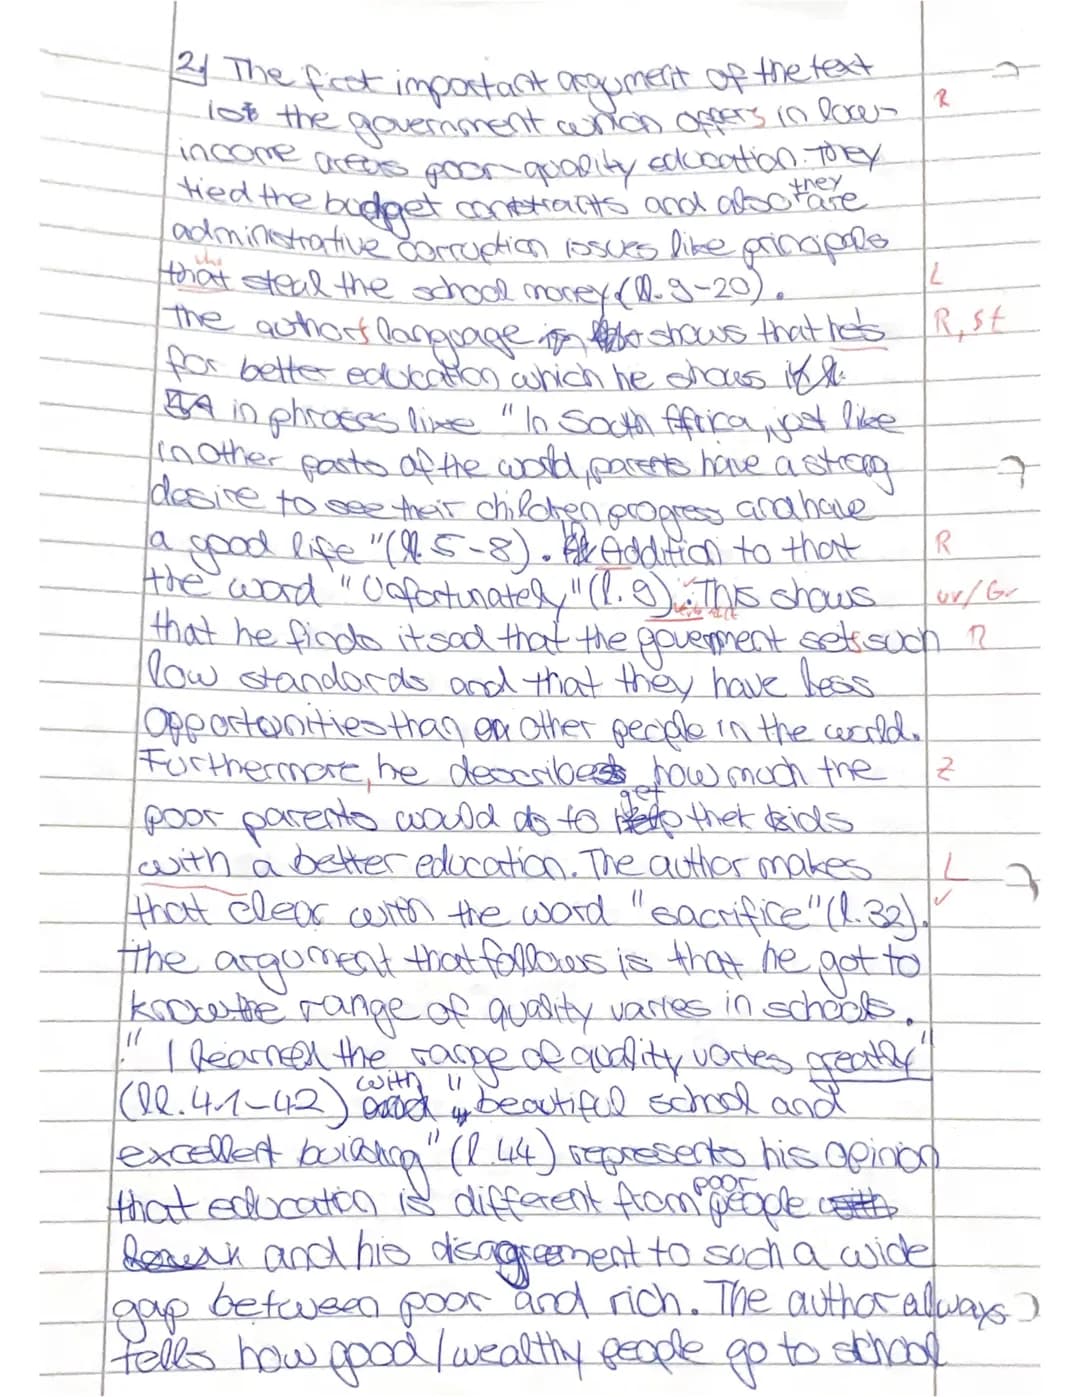 2) The first important argument of the text
is the government which offers in low- R
income areas poor-quality education. They
tied the budget constraints and also they are
administrative corruption issues like principals
who
that steal the school money (ll. 9-20). L
the author's language shows that he's R, St
for better education which he shows
in phrases like "In South Africa, just like
in other parts of the world, parents have a strong
desire to see their children progress and have
a good life" (ll. 5-8). Addition to that R
the word "Unfortunately" (l. 9). This shows Gr
that he finds it sad that the government sets such R
low standards and that they have less
opportunities than other people in the world.
Furthermore, he describes how much the Z
poor parents would do to get their kids
with a better education. The author makes L
that clear with the word "sacrifice" (l. 32). ✓
the argument that follows is that he got to
know the range of quality varies in schools.
" I learned the range of quality varies greatly"
(ll. 41-42) with "beautiful school and
excellent building" (l. 44) represents his opinion
that education is different from poor people
and his disagreement to such a wide
gap between poor and rich. The author always
tells how good/wealthy people go to school